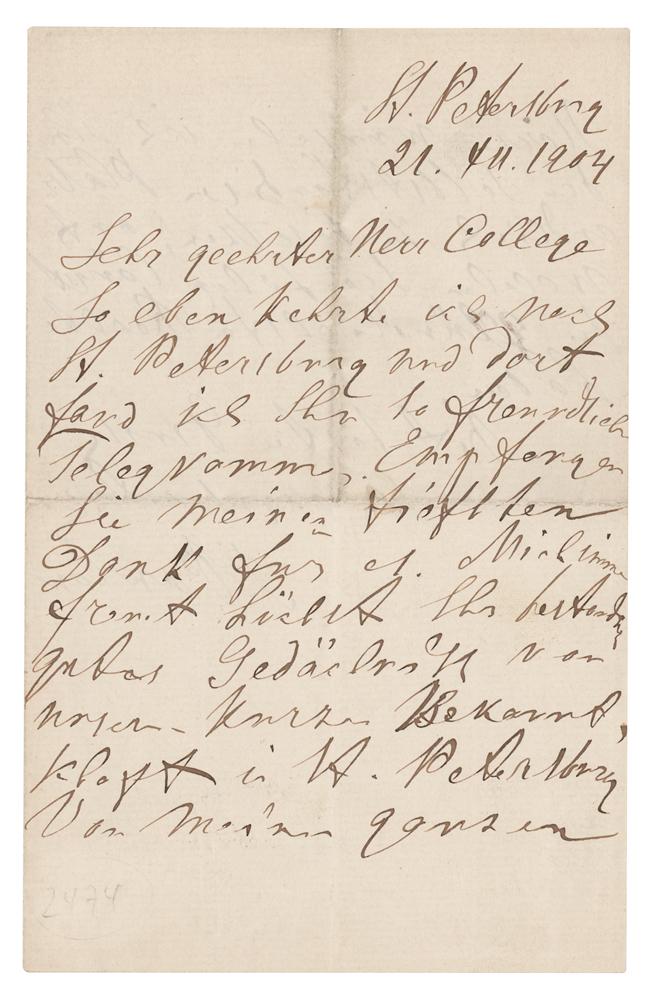 St. Petersburg
21. XII. 1904
Sehr geehrter Herr College
So eben kehrte ich nach
St. Petersburg und dort
fand ich Ihr so freundlich
Telegramm. Empfangen
Sie meinen tiefsten
Dank fur es. Mich immer
freut höchst Ihr bestandig
gutes Gedächniss von
unser kurzen Bekannt,
schaft in St. Petersburg
Von meinen ganzen
2474